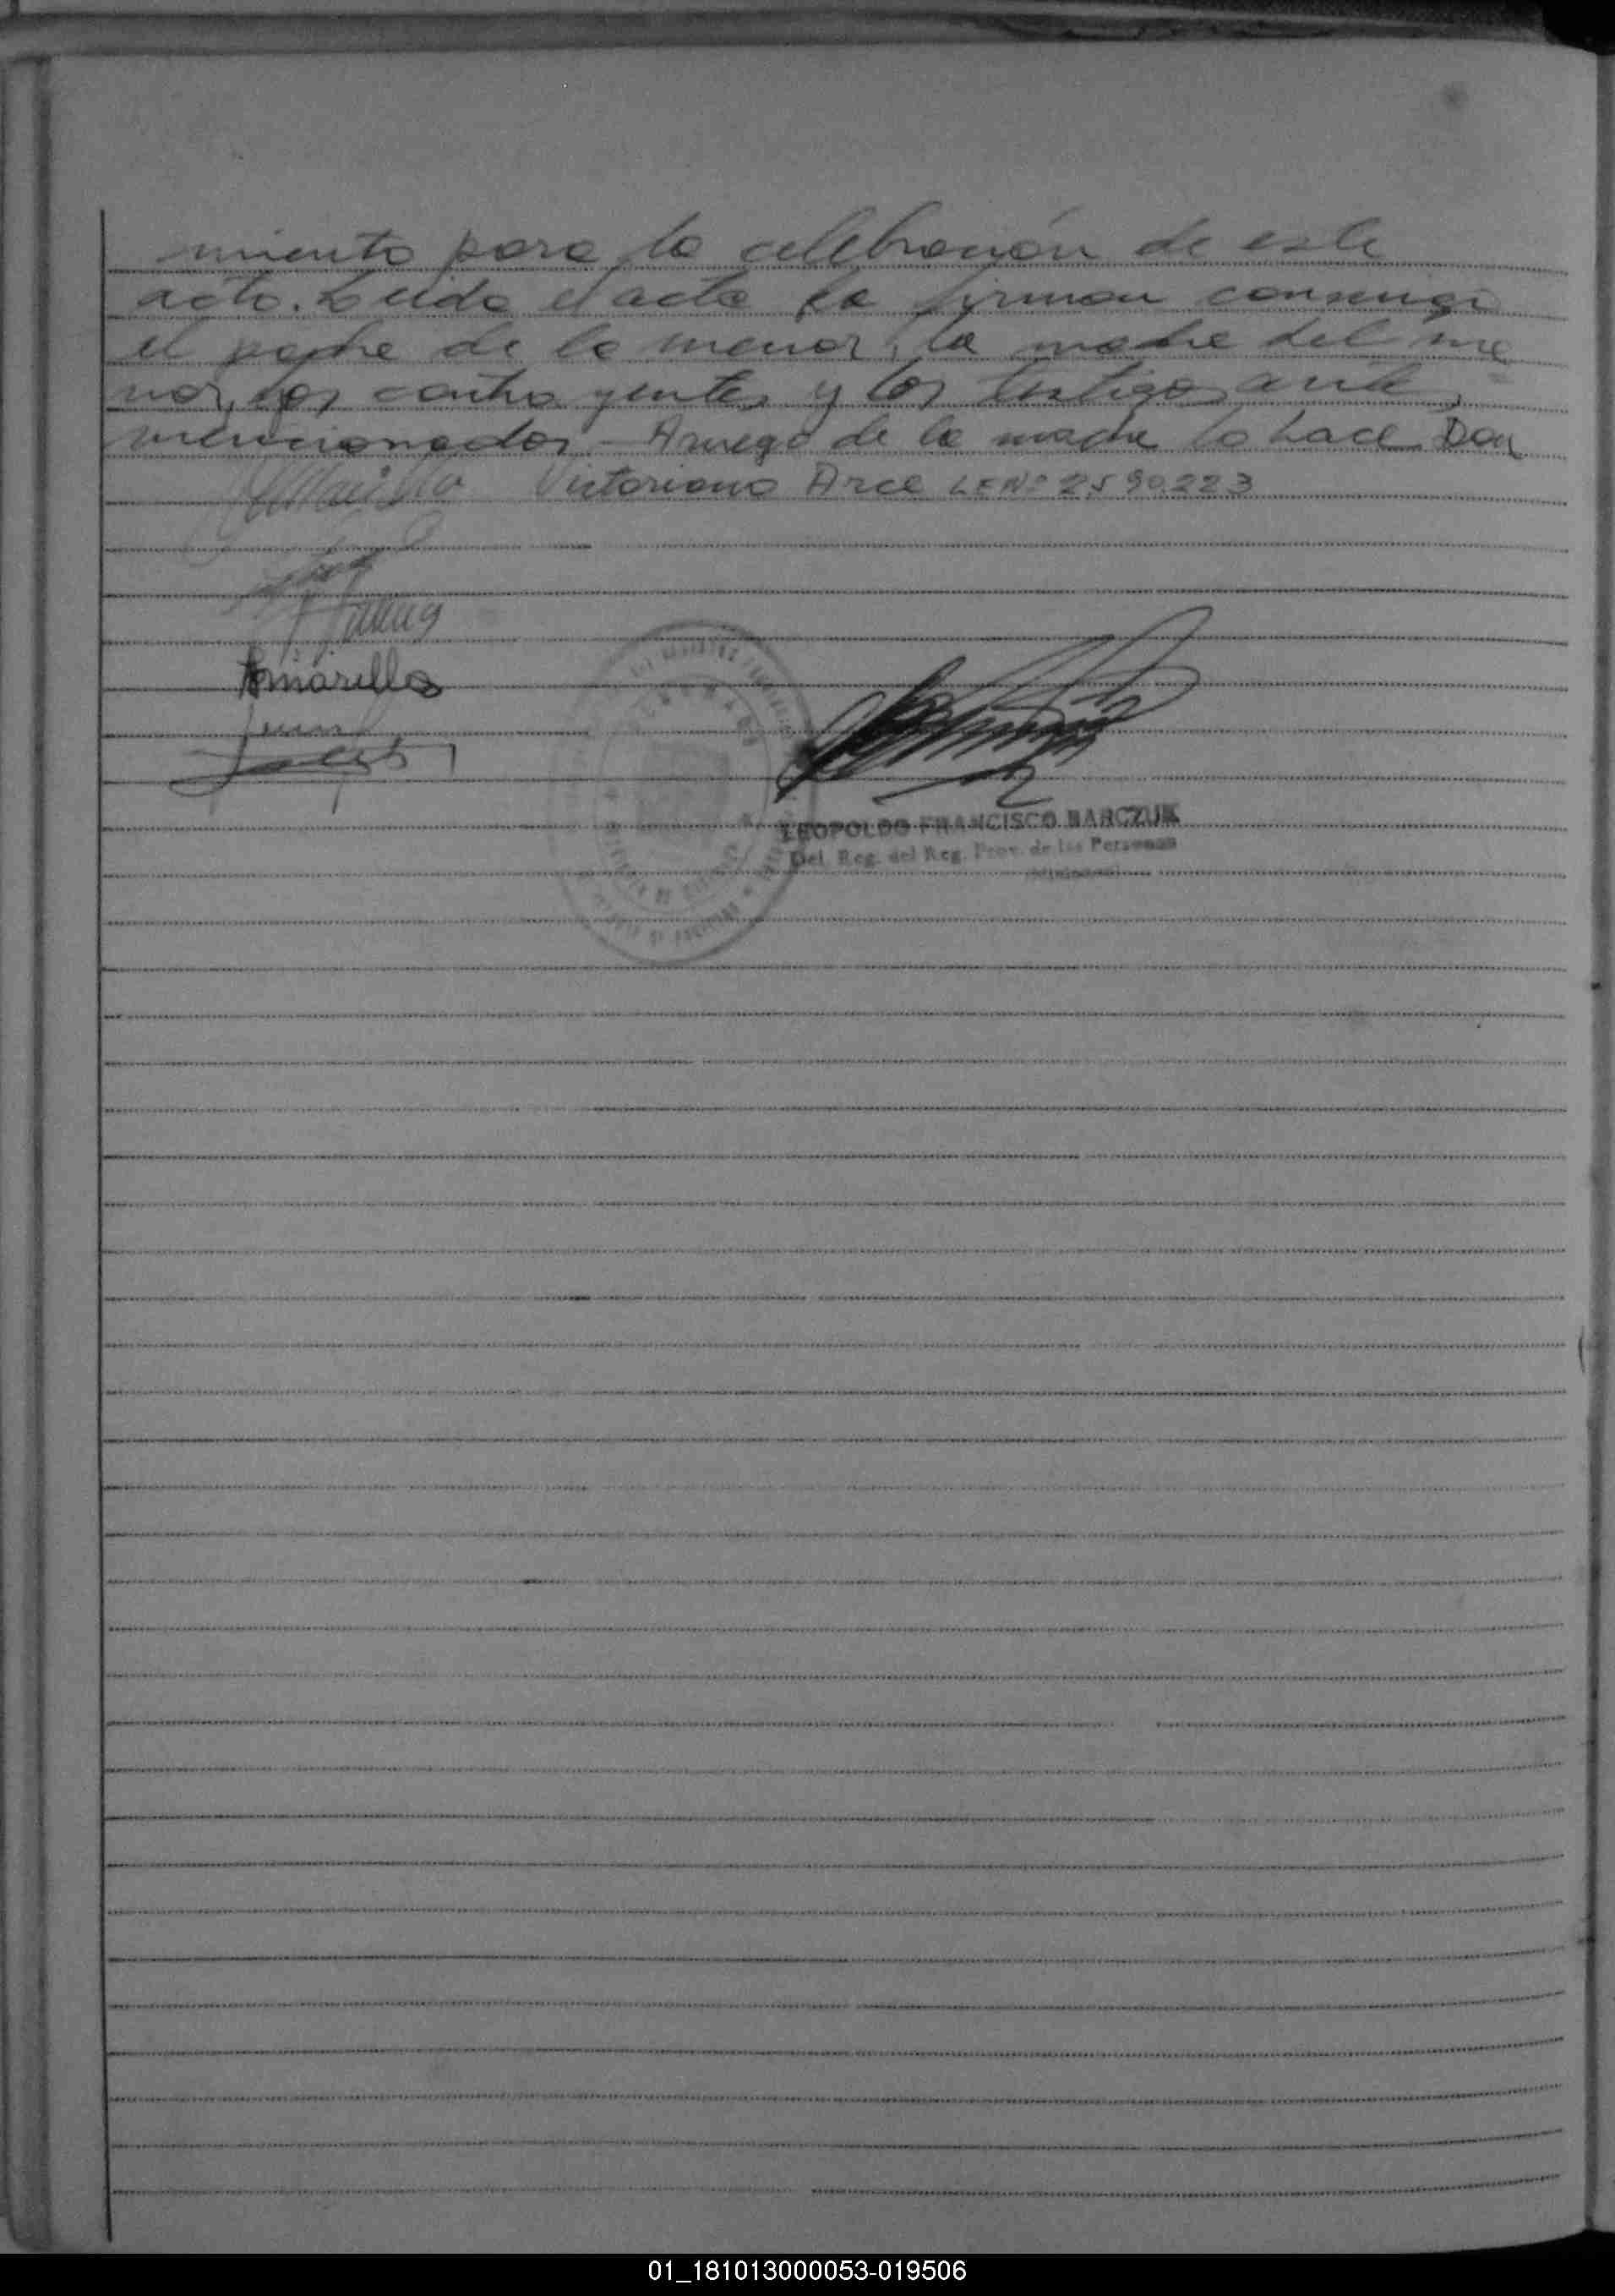 miento para la celebración de este
acto. Leida el acta la firman conmigo
el padre de la menor, la madre del me
nor, los contrayentes y los testigos ante
mencionados.- A ruego de la madre lo hace Don
Victoriano Arce LE Nº 2590223
Amarilla
LEOPOLDO FRANCISCO BARCZUK
Del. Reg. del Reg. Prov. de las Personas
01_181013000053-019506